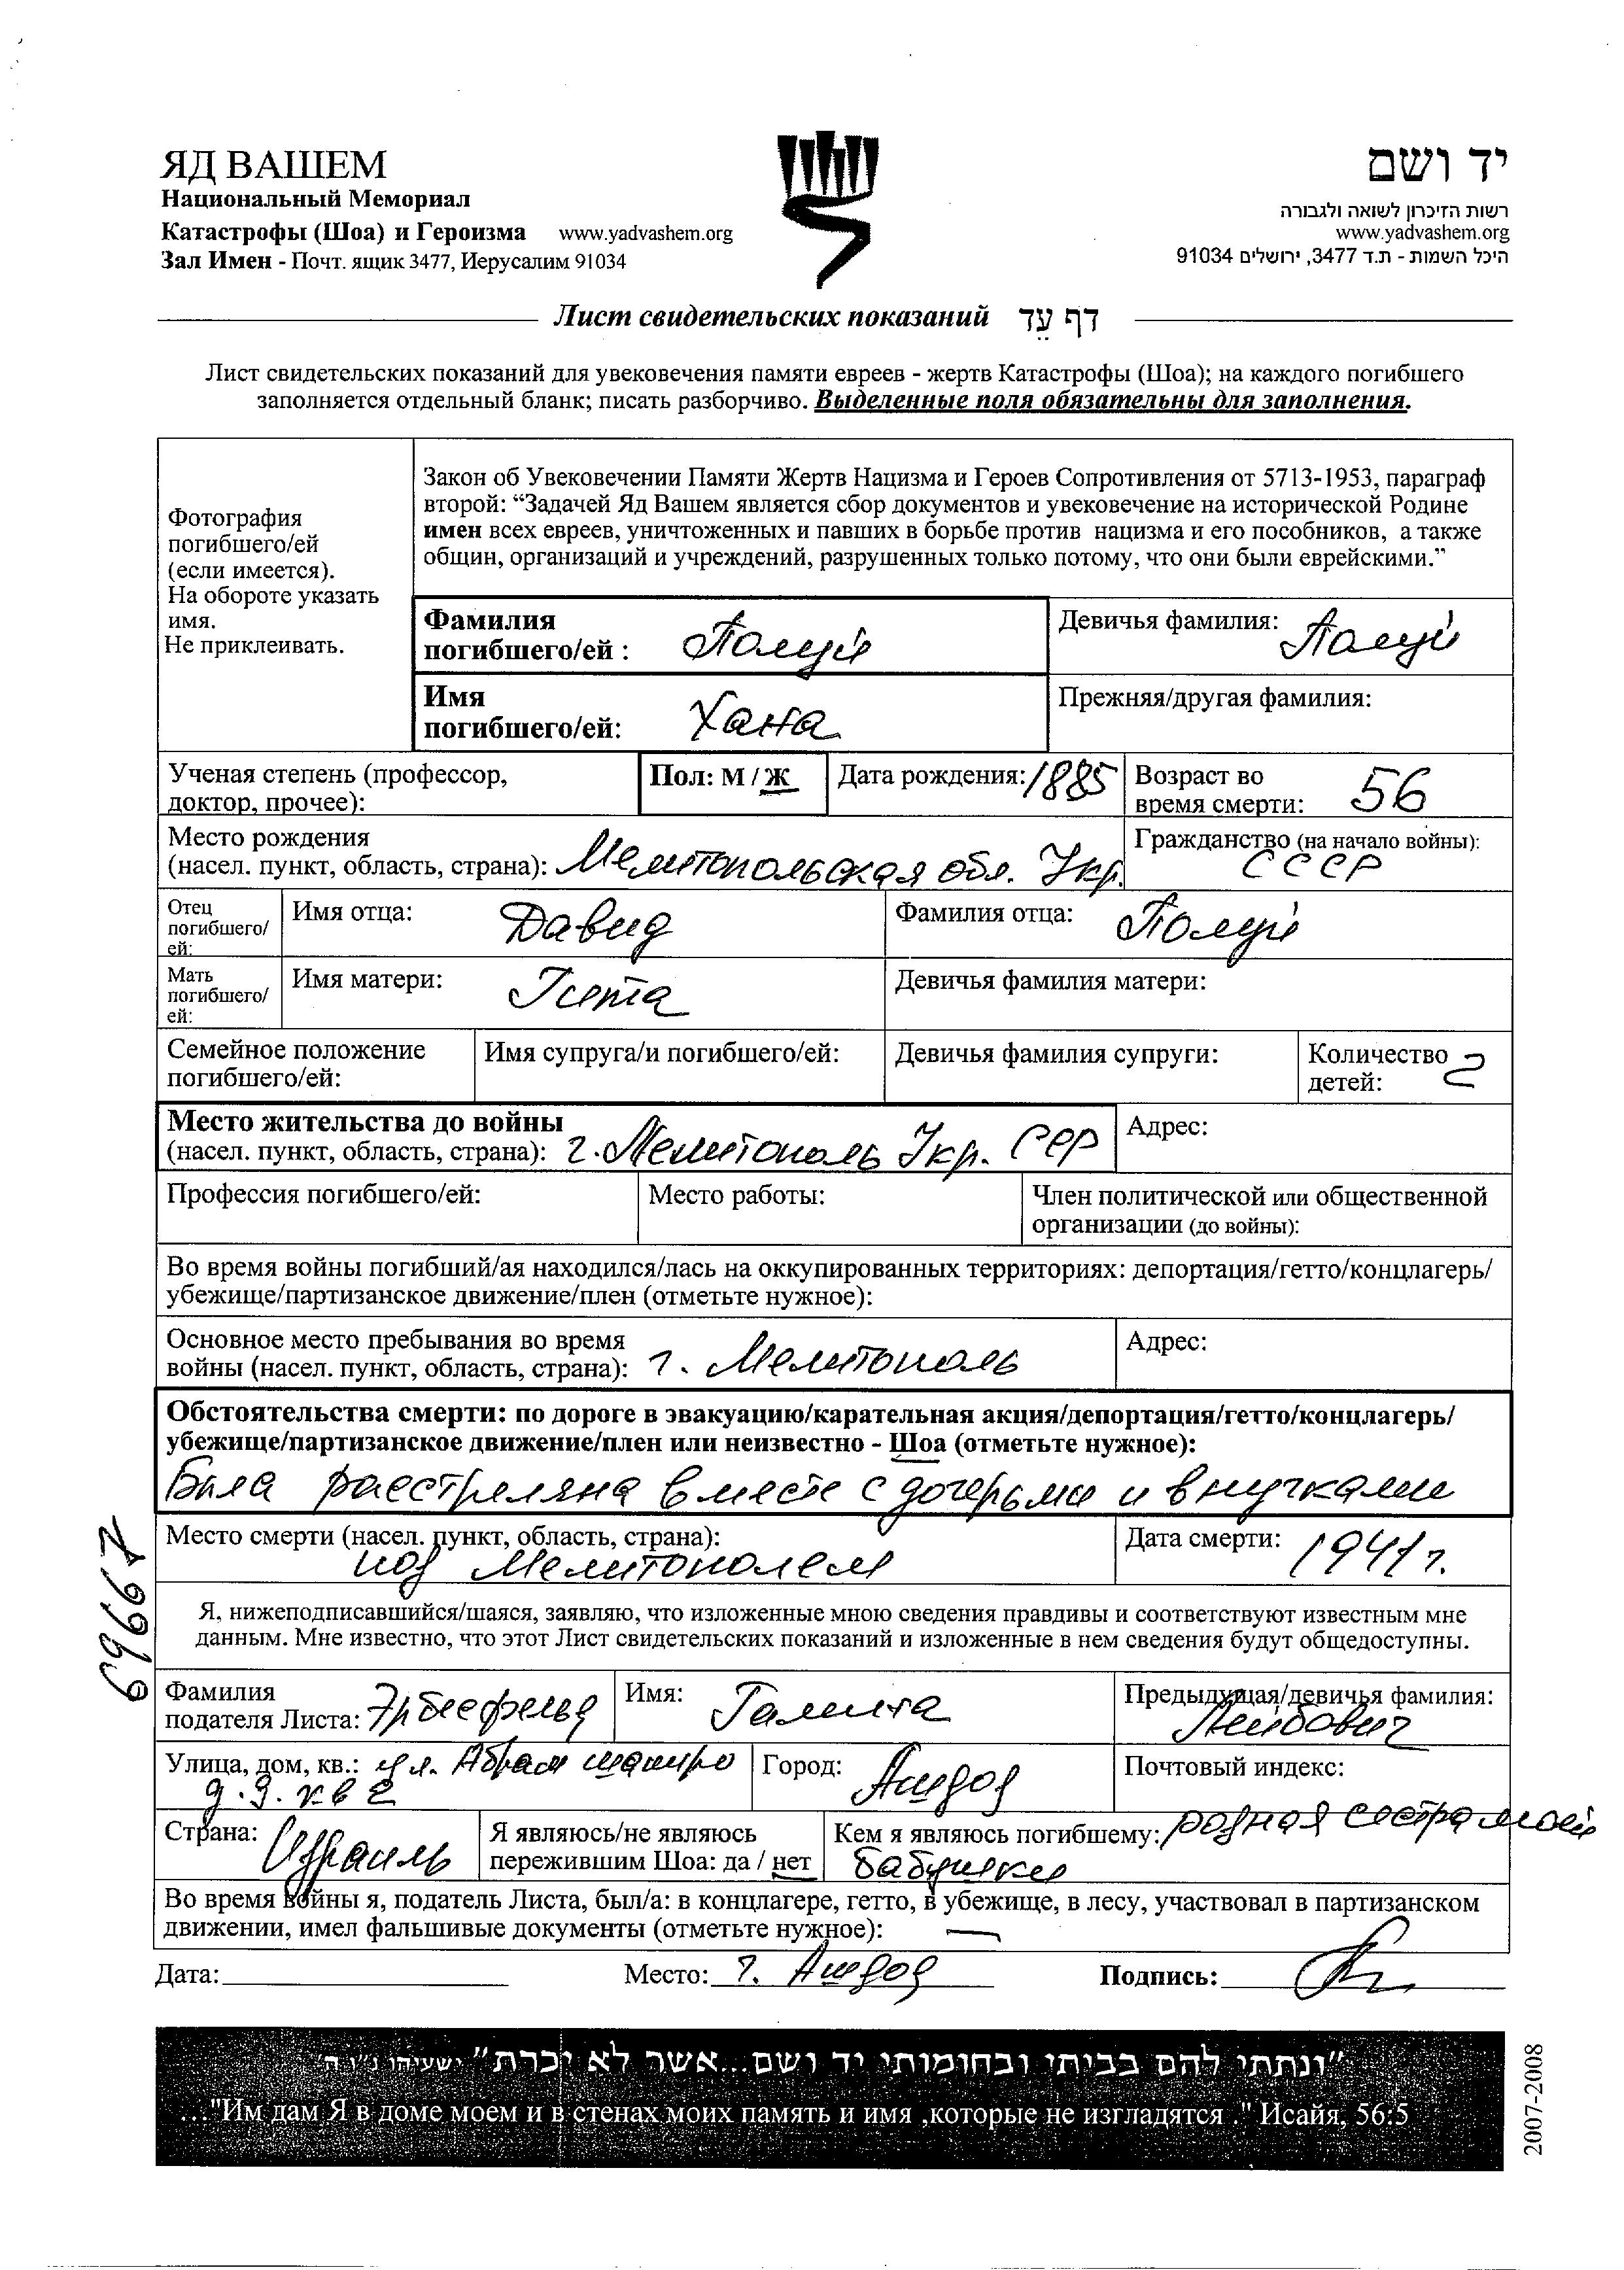 ЯД ВАШЕМ
Национальный Мемориал
Катастрофы (Шоа) и Героизма www.yadvashem.org
Зал Имен - Почт. ящик 3477, Иерусалим 91034
יד ושם
רשות הזיכרון לשואה ולגבורה
www.yadvashem.org
היכל השמות - ת.ד 3477, ירושלים 91034
Лист свидетельских показаний דף עֵד
Лист свидетельских показаний для увековечения памяти евреев - жертв Катастрофы (Шоа); на каждого погибшего
заполняется отдельный бланк; писать разборчиво. Выделенные поля обязательны для заполнения.
Фотография
погибшего/ей
(если имеется).
На обороте указать
имя.
Не приклеивать.
Закон об Увековечении Памяти Жертв Нацизма и Героев Сопротивления от 5713-1953, параграф
второй: “Задачей Яд Вашем является сбор документов и увековечение на исторической Родине
имен всех евреев, уничтоженных и павших в борьбе против нацизма и его пособников, а также
общин, организаций и учреждений, разрушенных только потому, что они были еврейскими.”
Фамилия
погибшего/ей :
Девичья фамилия:
Имя
погибшего/ей: Хана
Прежняя/другая фамилия:
Ученая степень (профессор,
доктор, прочее):
Пол: М / Ж
Дата рождения: 1885
Возраст во
время смерти: 56
Место рождения
(насел. пункт, область, страна): Мелитопольская обл. Укр.
Гражданство (на начало войны):
СССР
Отец
погибшего/
ей:
Имя отца: Давид
Фамилия отца:
Мать
погибшего/
ей:
Имя матери:
Девичья фамилия матери:
Семейное положение
погибшего/ей:
Имя супруга/и погибшего/ей:
Девичья фамилия супруги:
Количество 2
детей:
Место жительства до войны
(насел. пункт, область, страна): г. Мелитополь Укр. ССР
Адрес:
Профессия погибшего/ей:
Место работы:
Член политической или общественной
организации (до войны):
Во время войны погибший/ая находился/лась на оккупированных территориях: депортация/гетто/концлагерь/
убежище/партизанское движение/плен (отметьте нужное):
Основное место пребывания во время
войны (насел. пункт, область, страна): г. Мелитополь
Адрес:
Обстоятельства смерти: по дороге в эвакуацию/карательная акция/депортация/гетто/концлагерь/
убежище/партизанское движение/плен или неизвестно - Шоа (отметьте нужное):
Была расстреляна вместе с дочерьми и внучками
Место смерти (насел. пункт, область, страна):
под Мелитополем
Дата смерти: 1941 г.
69667
Я, нижеподписавшийся/шаяся, заявляю, что изложенные мною сведения правдивы и соответствуют известным мне
данным. Мне известно, что этот Лист свидетельских показаний и изложенные в нем сведения будут общедоступны.
Фамилия
подателя Листа:
Имя: Галита
Предыдущая/девичья фамилия:
Лейбович
Улица, дом, кв.: ул. Абрам шапиро
д. 9. кв 2
Город: Ашдод
Почтовый индекс:
Страна: Израиль
Я являюсь/не являюсь
пережившим Шоа: да / нет
Кем я являюсь погибшему: родная сестра моей
бабушки
Во время войны я, податель Листа, был/а: в концлагере, гетто, в убежище, в лесу, участвовал в партизанском
движении, имел фальшивые документы (отметьте нужное): —
Дата: Место: г. Ашдод Подпись:
"ונתתי להם בביתי ובחומותי יד ושם...אשר לא יכרת" ישעיהו נ"ו ה'
..."Им дам Я в доме моем и в стенах моих память и имя ,которые не изгладятся ." Исайя, 56:5
2007-2008